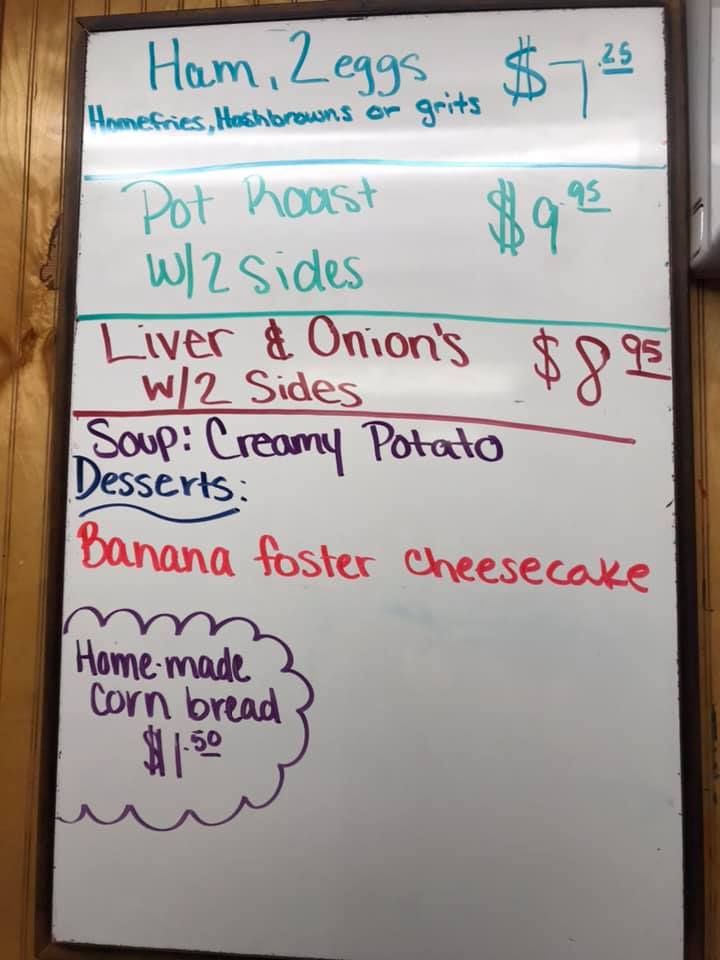 Ham, 2 eggs $7.25
Homefries, Hashbrowns or grits
Pot Roast $9.95
W/2 Sides
Liver & Onion's $8 95
W/2 Sides
Soup: Creamy Potato
Desserts:
Banana foster cheesecake
Home-made
Corn bread
$1.50